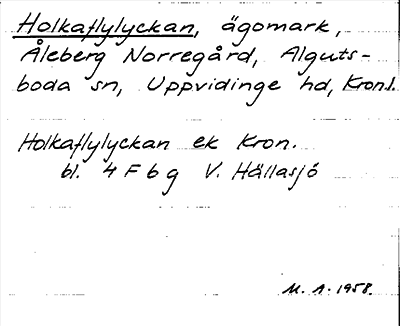 Holkaflylyckan, ägomark,
Åleberg Norregård, Alguts-
boda sn, Uppvidinge hd, Kron.l.
Holkaflylyckan ek Kron.
bl. 4 F 6 g V. Hällasjö
M. A. 1958.